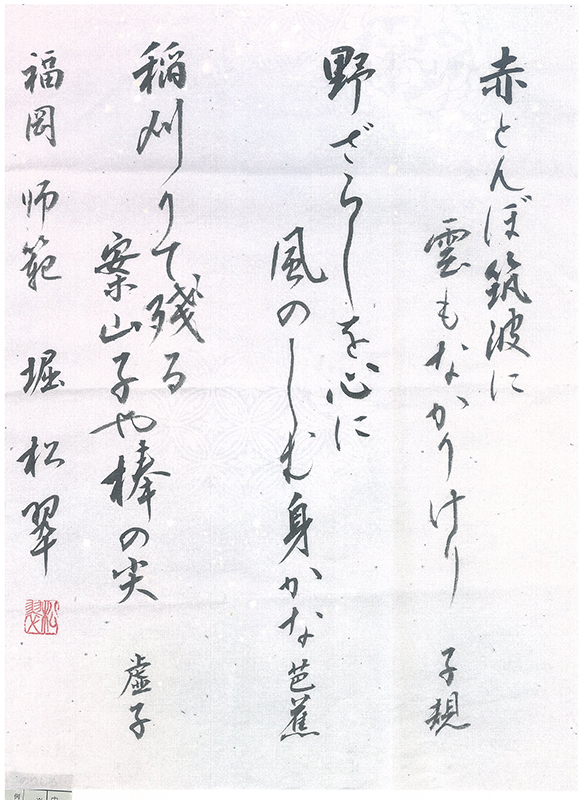 赤とんぼ筑波に
雲もなかりけり 子規
野ざらしを心に
風のしむ身かな 芭蕉
稲刈りて残る
案山子や棒の尖 虚子
福岡 師範 堀 松翠
松翠